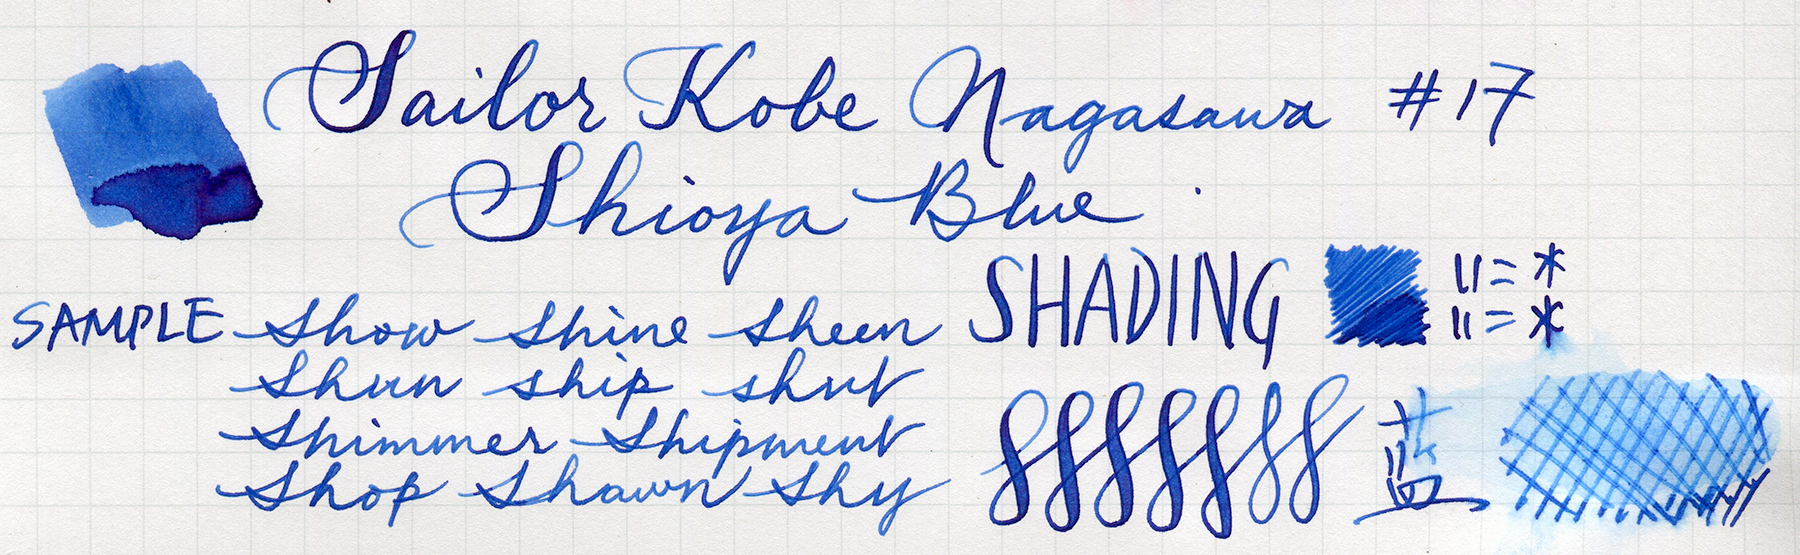 Sailor Kobe Nagasawa #17
Shioya Blue
SAMPLE Show Shine Sheen
Shun ship shut
Shimmer Shipment
Shop Shawn Shy
SHADING
藍